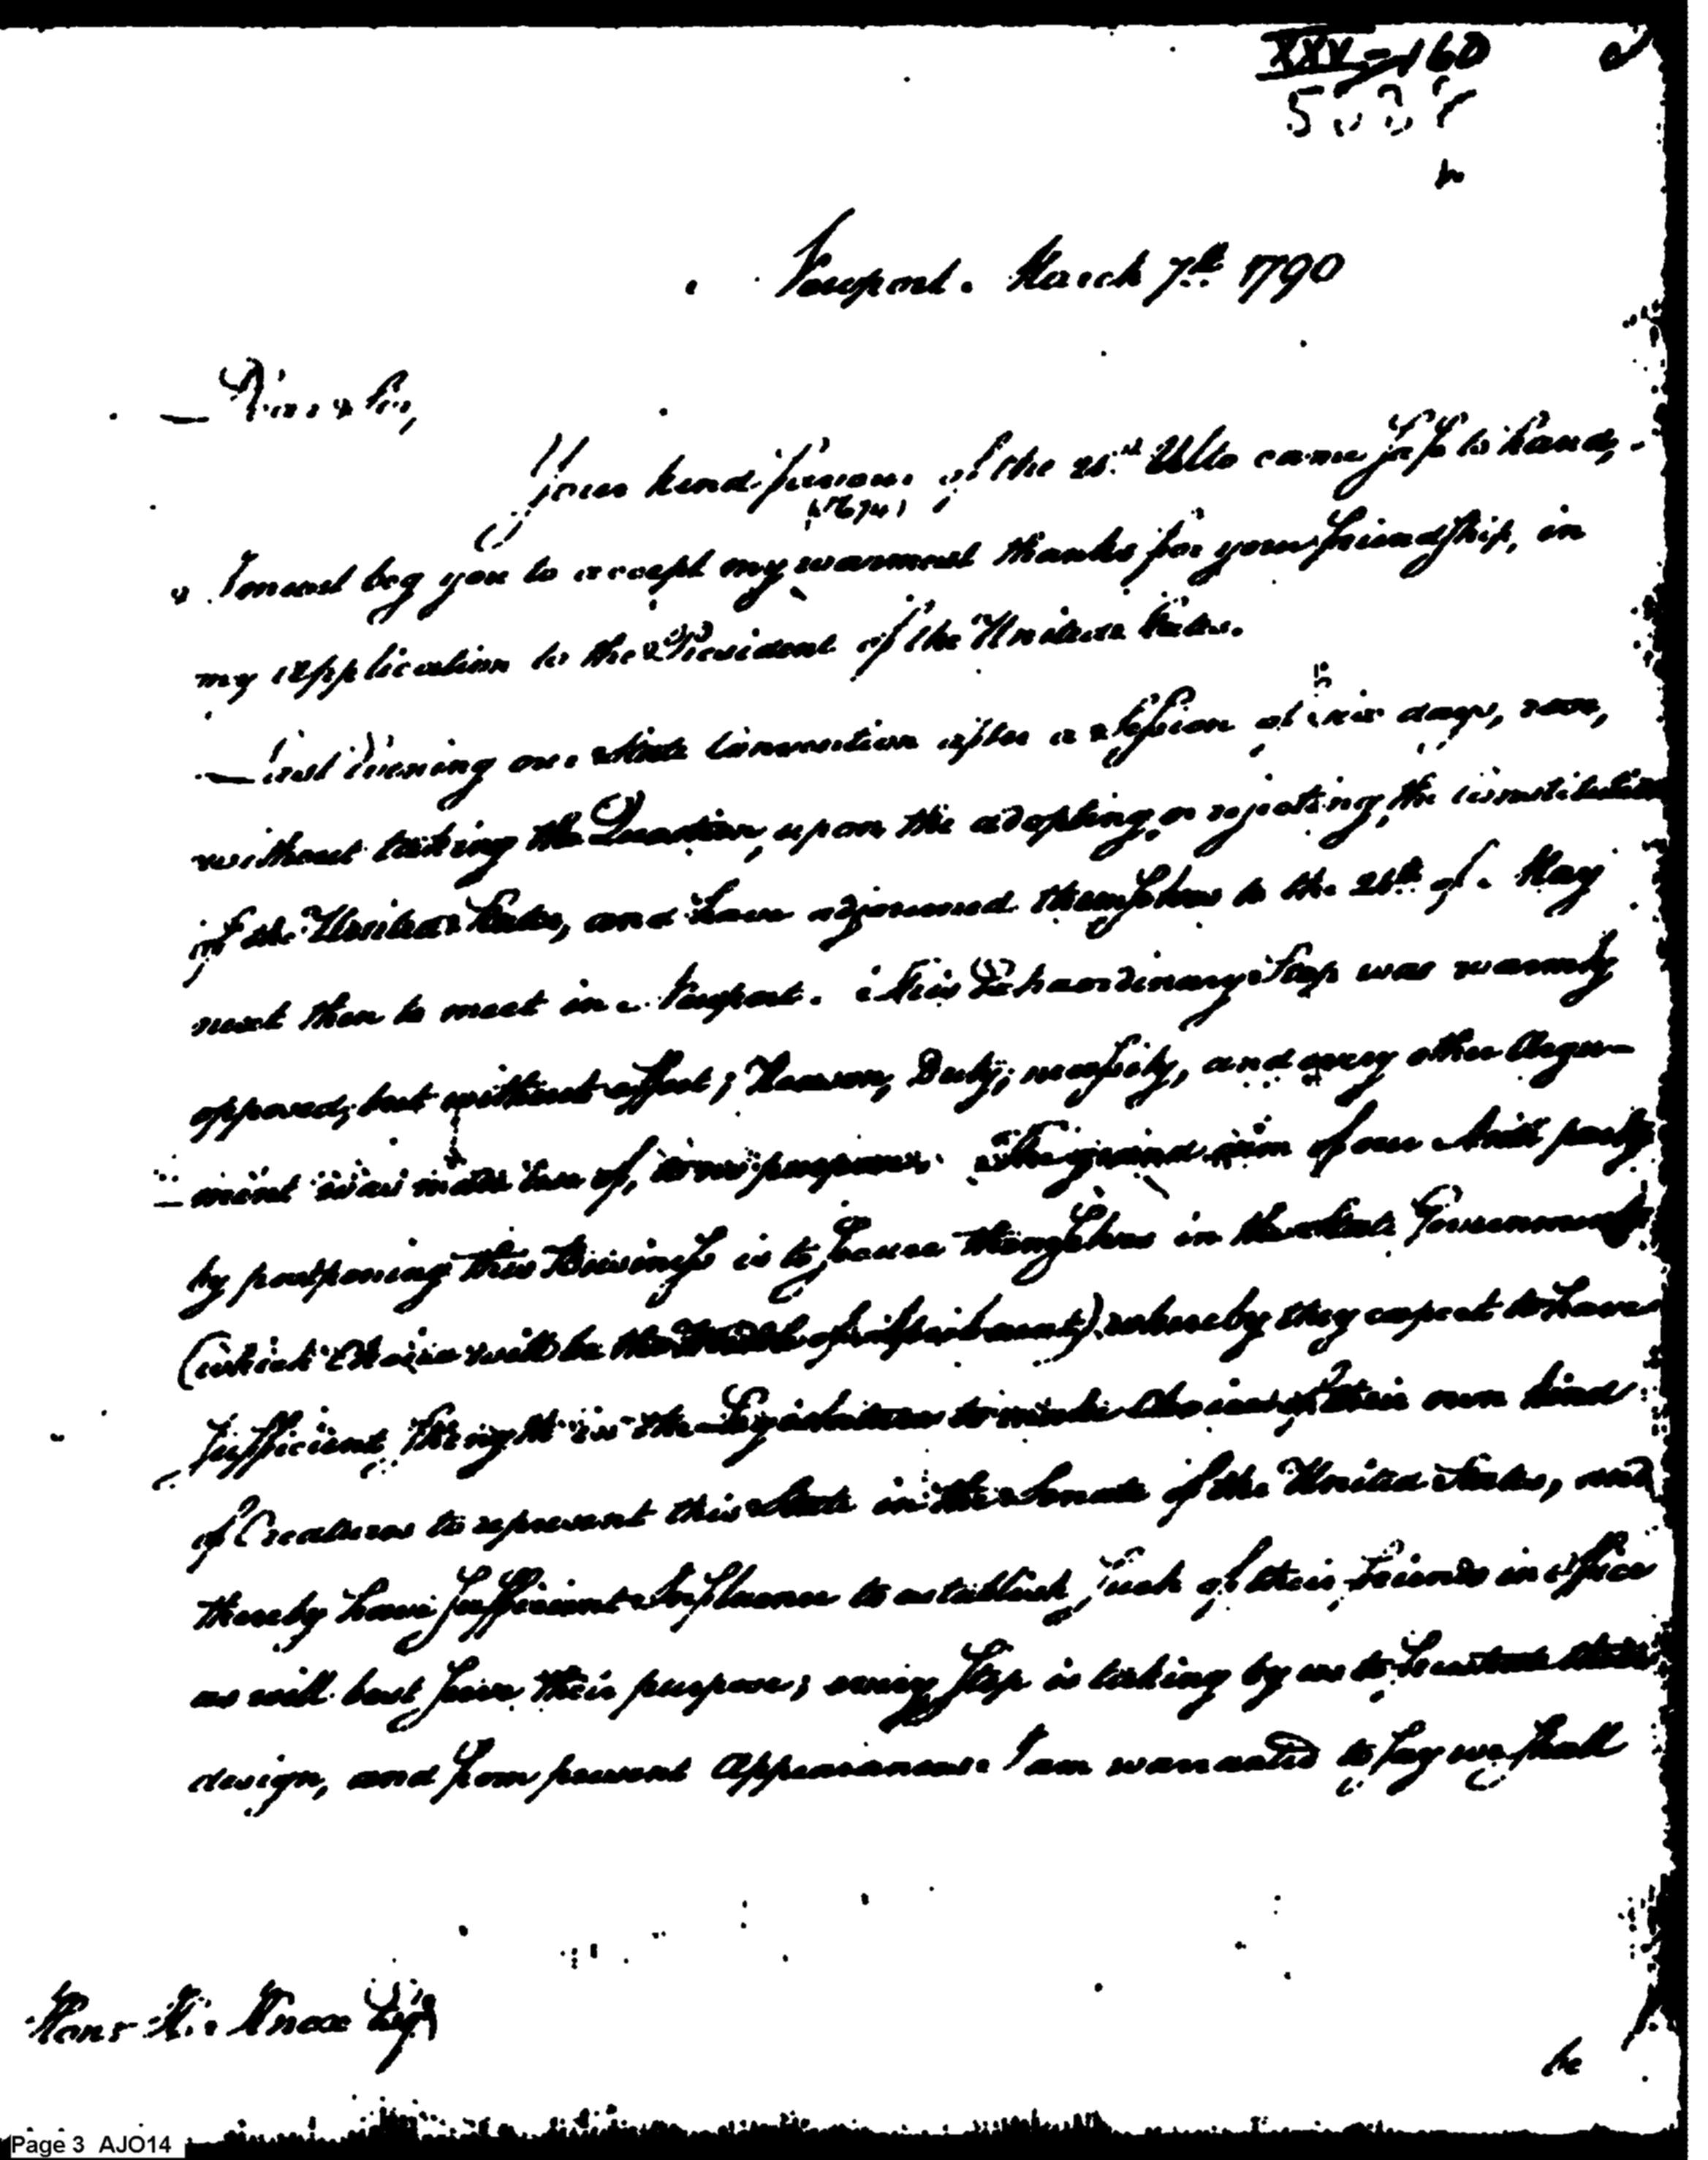 XXV-160
Newport. March 7th. 1790
Dear Sir,
Your kind favour of the 21st. Ulto came safe to hand,
I must beg you to accept my warmest thanks for your friendship, in
my application to the President of the United States.
Last Evening our State Convention after a Session of six days, rose,
without taking the Question, upon the adopting, or rejecting, the Constitution
of the United States, and have adjourned themselves to the 24th of. May
next then to meet in Newport. This Extraordinary Step was warmly
opposed, but without effect; Reason, Duty, necessity, and every other Argu-
-ment was made use of, to no purpose. The grand aim of our Anti party
by postponing this Business is to secure themselves in the State Government
(which Choice will be the of April next) whereby they expect to have
sufficient strength in the Legislature to make Choice of their own kind
of Creatures to represent this State in the Senate of the United States, and
thereby have sufficient Influence to establish such of their Friends in office
as will best serve their purpose; every step is taking by us to their
design, and from present Appearances I am warranted to say we shall
Honr H. Knox Esqr
be
Page 3 AJO14